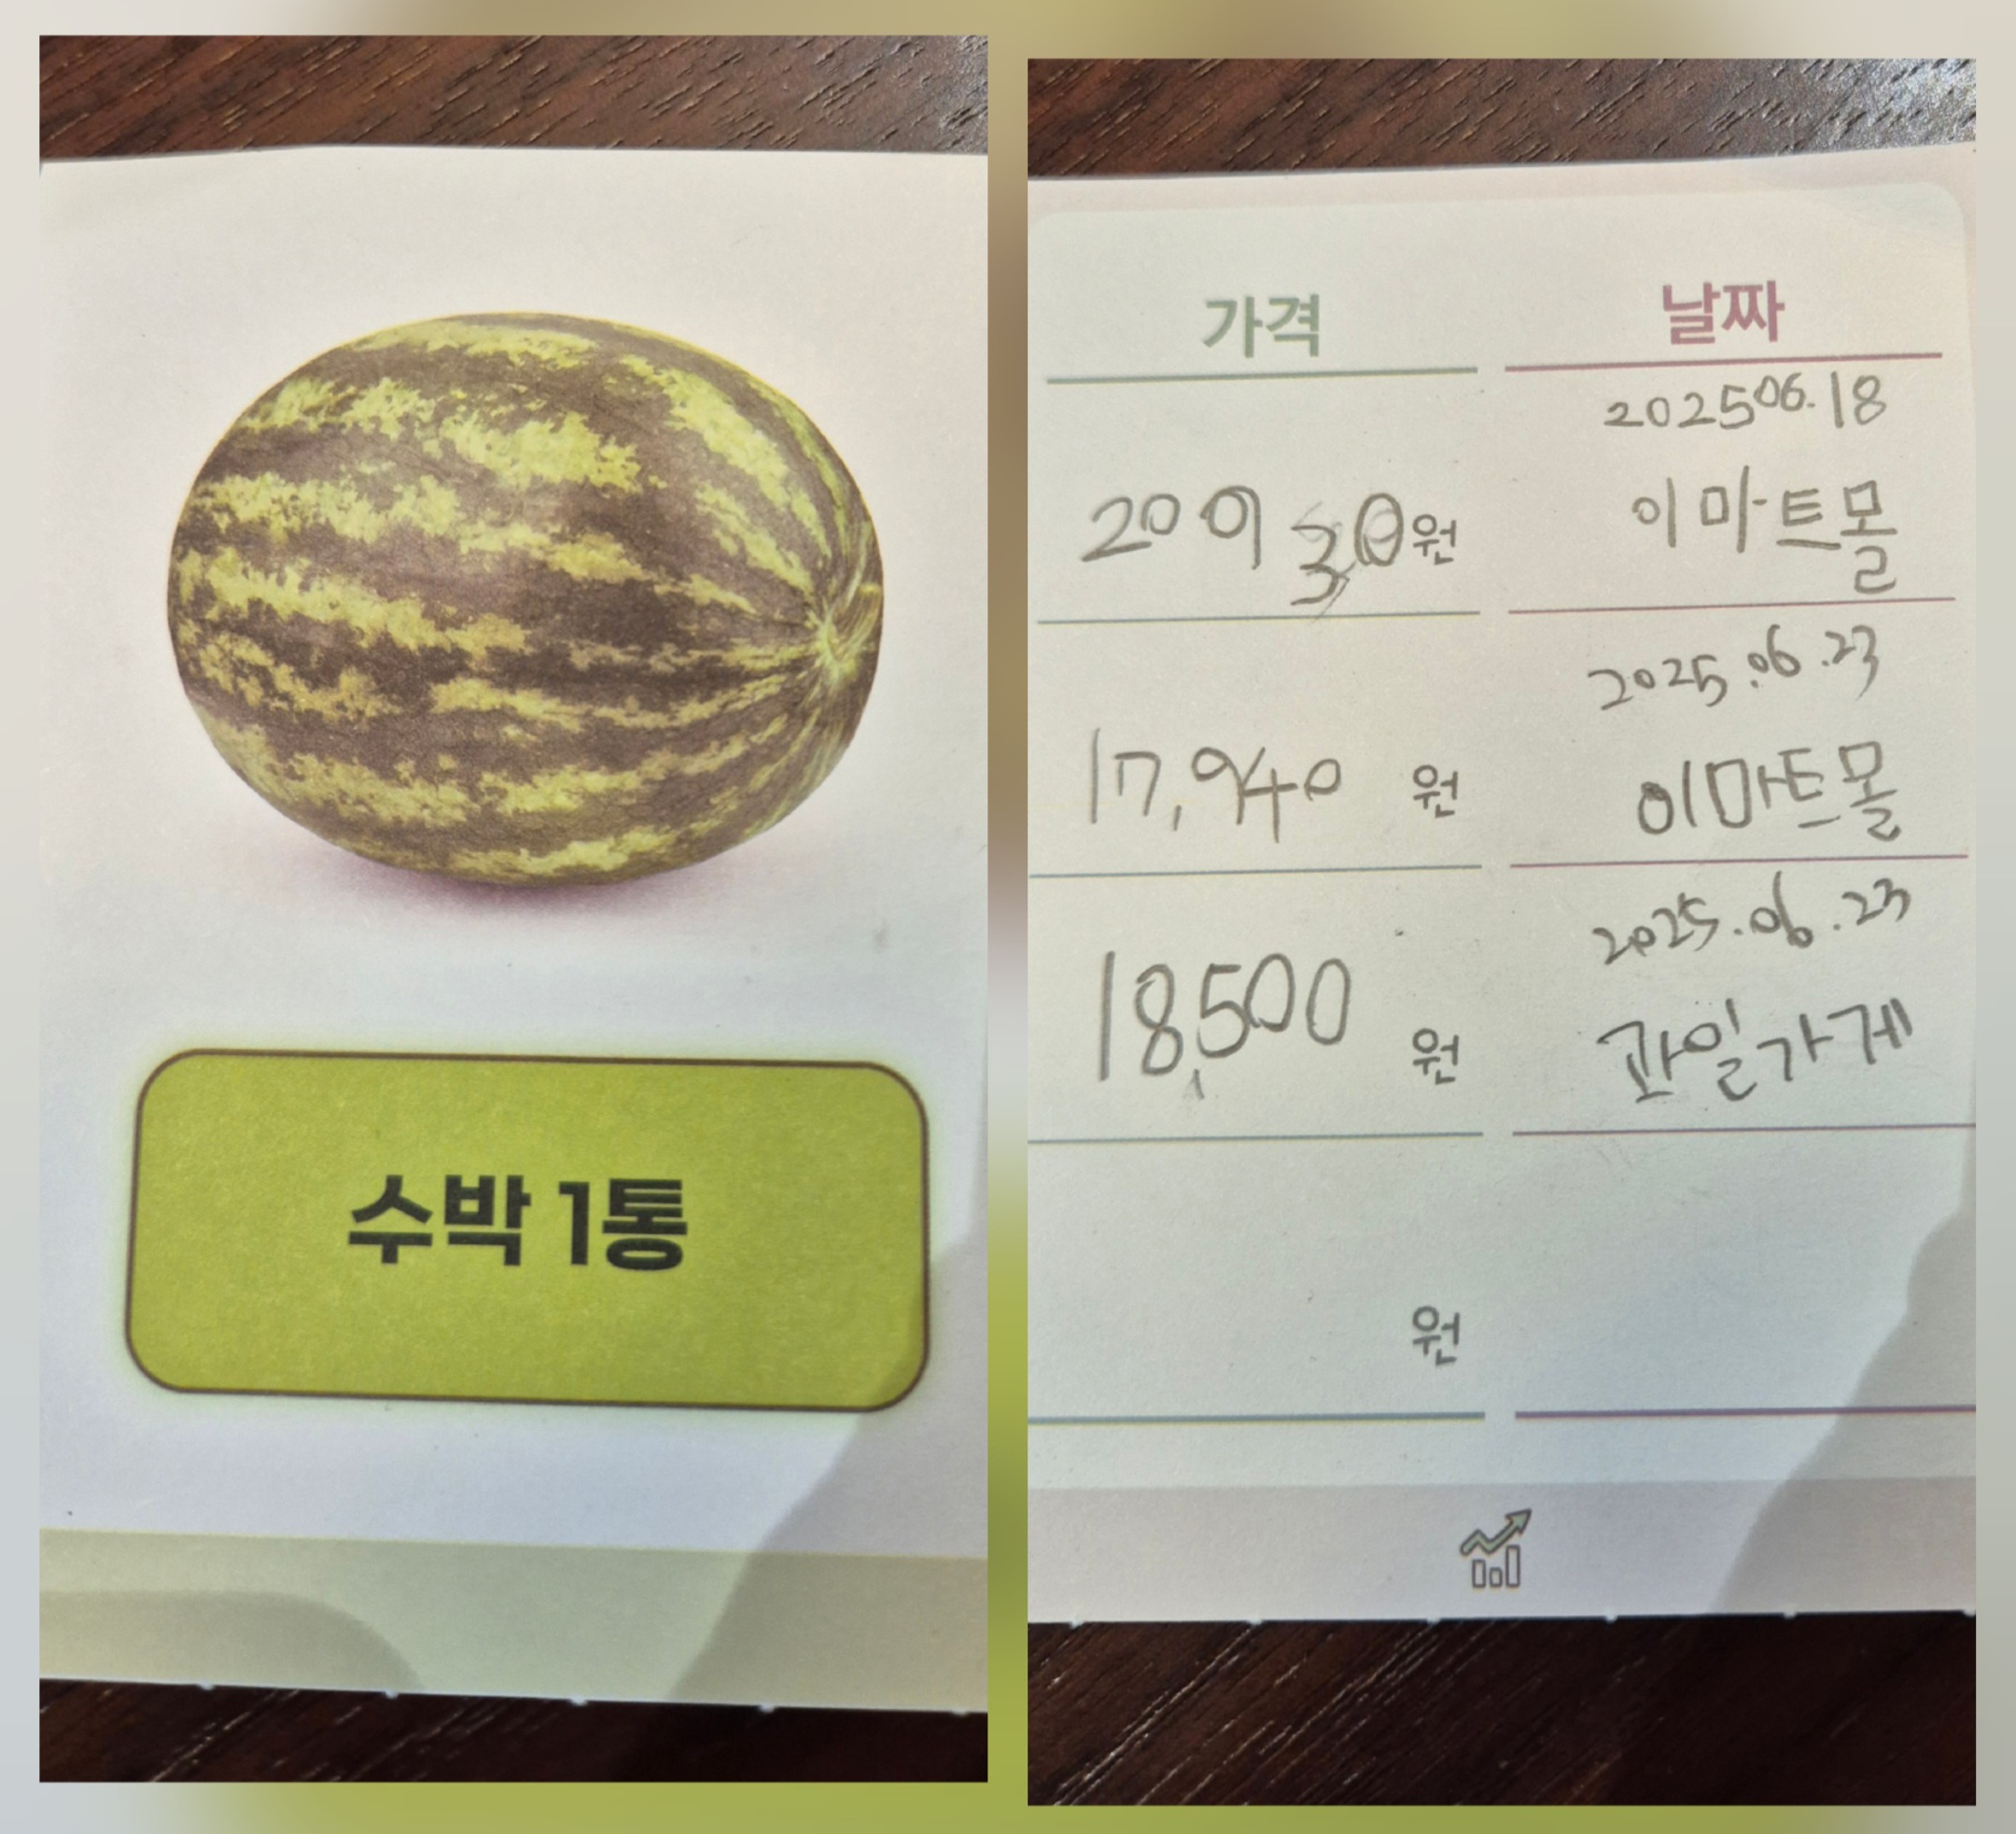 수박 1통
가격 날짜
2025 06.18
20930원 이마트몰
2025.06.23
17,940 원 이마트몰
2025.06.23
18,500 원 과일가게
원